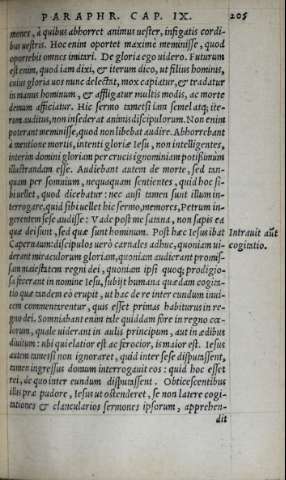 PARAPHR. CAP. IX. 205
mones, à quibus abhorret animus uester, infigatis cordi-
bus uestris. Hoc enim oportet maxime meminisse, quod
oportebit omnes imitari. De gloria ego uidero. Futurum
est enim, quod iam dixi, & iterum dico, ut filius hominis,
cuius gloria uos nunc delectat, mox capiatur, & tradatur
in manus hominum, & affligatur multis modis, ac morte
demum afficiatur. Hic sermo tametsi iam semel atq; ite-
rum auditus, non insederat animis discipulorum. Non enim
poterant meminisse, quod non libebat audire. Abhorrebant
à mentione mortis, intenti gloriæ Iesu, non intelligentes,
interim domini gloriam per crucis ignominiam potissimum
illustrandam esse. Audiebant autem de morte, sed tan-
quam per somnium, nequaquam sentientes, quid hoc si-
bi uellet, quod dicebatur: nec ausi tamen suit illum in-
terrogare, quid sibi uellet hic sermo, memores, Petrum in-
gerentem sese audisse: Vade post me satana, non sapis ea
quæ dei sunt, sed quæ sunt hominum. Post hæc Iesus ibat
Capernaum: discipulos uerò carnales adhuc, quoniam ui-
derant miraculorum gloriam, quoniam audierant promis-
sam maiestatem regni dei, quoniam ipsi quoq; prodigio-
sa fecerant in nomine Iesu, subijt humana quædam cogita-
tio quæ tandem eò erupit, ut hac de re inter eundum inui-
cem commentarentur, quis esset primas habiturus in re-
gno dei. Somniabant enim tale quiddam fore in regno cæ-
lorum, quale uiderant in aulis principum, aut in ædibus
diuitum: ubi qui elatior est ac ferocior, is maior est. Iesus
autem tametsi non ignoraret, quid inter sese disputassent,
tamen ingressus domum interrogauit eos: quid hoc esset
rei, de quo inter eundum disputassent. Obticescentibus
illis præ pudore, Iesus ut ostenderet, se non latere cogi-
tationes & clancularios sermones ipsorum, apprehen-
dit
Intrauit aūt
cogitatio.